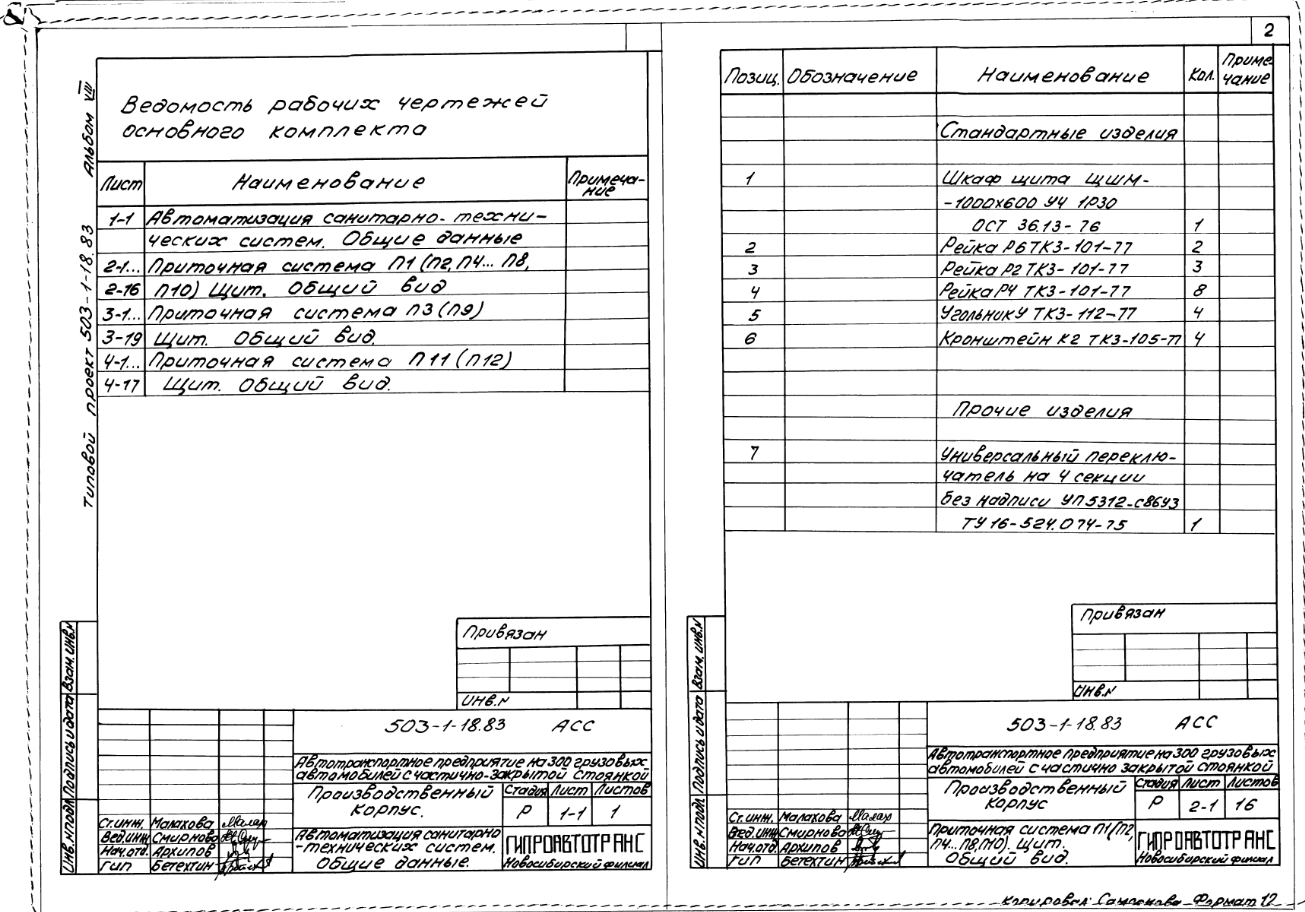 2
Типовой проект 503-1-18.83 Альбом VIII
Ведомость рабочих чертежей
основного комплекта
Лист Наименование Примеча-
ние
1-1 Автоматизация санитарно-техни-
ческих систем. Общие данные
2-1... Приточная система П1 (П2, П4... П8,
2-16 П10) Щит. Общий вид
3-1... Приточная система П3 (П9)
3-19 Щит. Общий вид.
4-1... Приточная система П11 (П12)
4-17 Щит. Общий вид.
Привязан
Инв.N
Инв.N подл. Подпись и дата Взам. инв.N
503-1-18.83 АСС
Автотранспортное предприятие на 300 грузовых
автомобилей с частично-закрытой стоянкой
Производственный
корпус.
Стадия Лист Листов
Р 1-1 1
Ст.инж. Малахова
Вед.инж Смирнова
Нач.отд. Архипов
ГИП Бетехтин
Автоматизация санитарно
-технических систем.
Общие данные.
ГИПРОАВТОТРАНС
Новосибирский филиал
Позиц. Обозначение Наименование Кол. Приме
чание
Стандартные изделия
1 Шкаф щита ЩШМ-
-1000х600 У4 1Р30
ОСТ 36.13-76 1
2 Рейка Р6 ТК3-101-77 2
3 Рейка Р2 ТК3-101-77 3
4 Рейка Р4 ТК3-101-77 8
5 Угольник У ТК3-112-77 4
6 Кронштейн К2 ТК3-105-77 4
Прочие изделия
7 Универсальный переклю-
чатель на 4 секции
без надписи УП5312-С86У3
ТУ 16-524.074-75 1
Привязан
Инв.N
Инв.N подл. Подпись и дата Взам. инв.N
503-1-18.83 АСС
Автотранспортное предприятие на 300 грузовых
автомобилей с частично закрытой стоянкой
Производственный
корпус
Стадия Лист Листов
Р 2-1 16
Ст.инж. Малахова
Вед.инж Смирнова
Нач.отд. Архипов
ГИП Бетехтин
Приточная система П1 (П2,
П4...П8, П10). Щит.
Общий вид.
ГИПРОАВТОТРАНС
Новосибирский филиал
Копировал: Формат 12